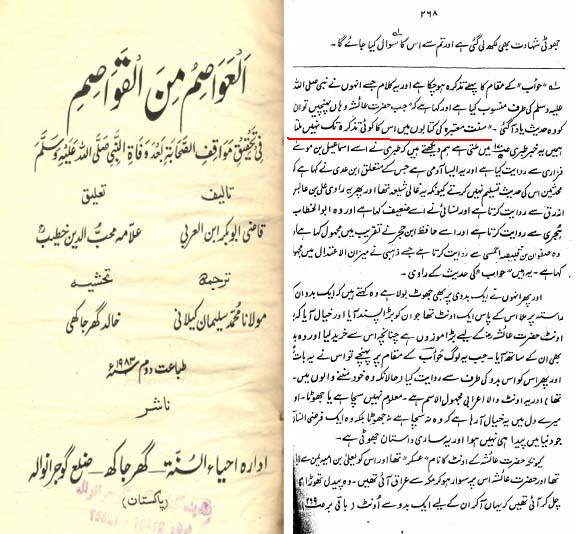 العواصم من القواصم
فی تحقیق مواقف الصحابة بعد وفاة النبی صلی اللہ علیہ وسلم
تالیف
تعلیق
قاضی ابوبکر ابن العربی
علامہ محب الدین خطیب
ترجمہ
تحشیہ
مولانا محمد سلیمان کیلانی
خالد گھرجاکھی
طباعت دوم ۱۹۸۳ء
ناشر
ادارہ احیاء السنۃ - گھرجاکھ - ضلع گوجرانوالہ
(پاکستان)
۲۶۸
جھوٹی شہادت بھی لکھ لی گئی ہے اور تم سے اس کا سوال کیا جائے گا۔
"حواب" کے مقام کا پہلے تذکرہ ہو چکا ہے اور یہ کلام جسے انہوں نے نبی صلی اللہ
علیہ وسلم کی طرف منسوب کیا ہے اور کہا ہے کہ "جب حضرت عائشہ وہاں پہنچیں تو ان
کو وہ حدیث یاد آگئی۔" سنت معتبرہ کی کتابوں میں اس کا کوئی تذکرہ تک نہیں ملتا
ہمیں یہ خبر طبری میں ملتی ہے ہم دیکھتے ہیں کہ طبری نے اسے اسماعیل بن موسے
فزاری سے روایت کیا ہے اور یہ ایسا آدمی ہے جس کے متعلق ابن عدی نے کہا ہے
محدثین اس کی حدیث تسلیم نہیں کرتے کیونکہ یہ غالی شیعہ تھا اور پھر یہ راوی علی بن عابس
ازرق سے روایت کرتا ہے اور نسائی نے اسے ضعیف کہا ہے اور وہ ابو الخطاب
ہجری سے روایت کرتا ہے اور اسے حافظ ابن حجر نے تقریب میں مجہول کہا ہے
وہ صفوان بن قبیصہ احمسی سے روایت کرتا ہے جسے ذہبی نے میزان الاعتدال میں مجہول
کہا ہے۔ یہ ہیں "حواب" کی حدیث کے راوی۔
اور پھر انہوں نے ایک بدوی پر بھی جھوٹ بولا ہے وہ کہتے ہیں کہ ایک بدو ان
راستہ پر ملا اس کے پاس ایک اونٹ تھا جو ان کو بڑا پسند آیا اور خیال آیا کہ
حضرت عائشہ کے لیے بڑا موزوں ہے چنانچہ اس سے خرید کیا اور وہ بدو
بھی ان کے ساتھ آیا۔ جب یہ لوگ حواب کے مقام پر پہنچے تو اس نے یہ بات
اور پھر اس کو اس بدو کی طرف سے روایت کیا حالانکہ وہ خود سننے والوں میں
تھا اور یہ اونٹ والا اعرابی مجہول الاسم ہے۔ معلوم نہیں سچا ہے یا جھوٹا۔ اور
میرے دل میں یہ خیال آ رہا ہے کہ وہ نہ سچا ہے نہ جھوٹا بلکہ وہ ایک فرضی انسان
جو دنیا میں پیدا ہی نہیں ہوا اور یہ ساری داستان جھوٹی ہے۔
کیونکہ حضرت عائشہ کے اونٹ کا نام "عسکر" تھا اور اس کو یعلی بن امیہ یمن سے لایا
تھا اور حضرت عائشہ اس پر سوار ہو کر مکہ سے عراق آئی تھیں۔ وہ پیدل تھوڑا ہی
چل کر آئی تھیں کہ یہاں آکر ان کے لیے ایک بدو سے اونٹ (باقی بر صہ ۲۶۹